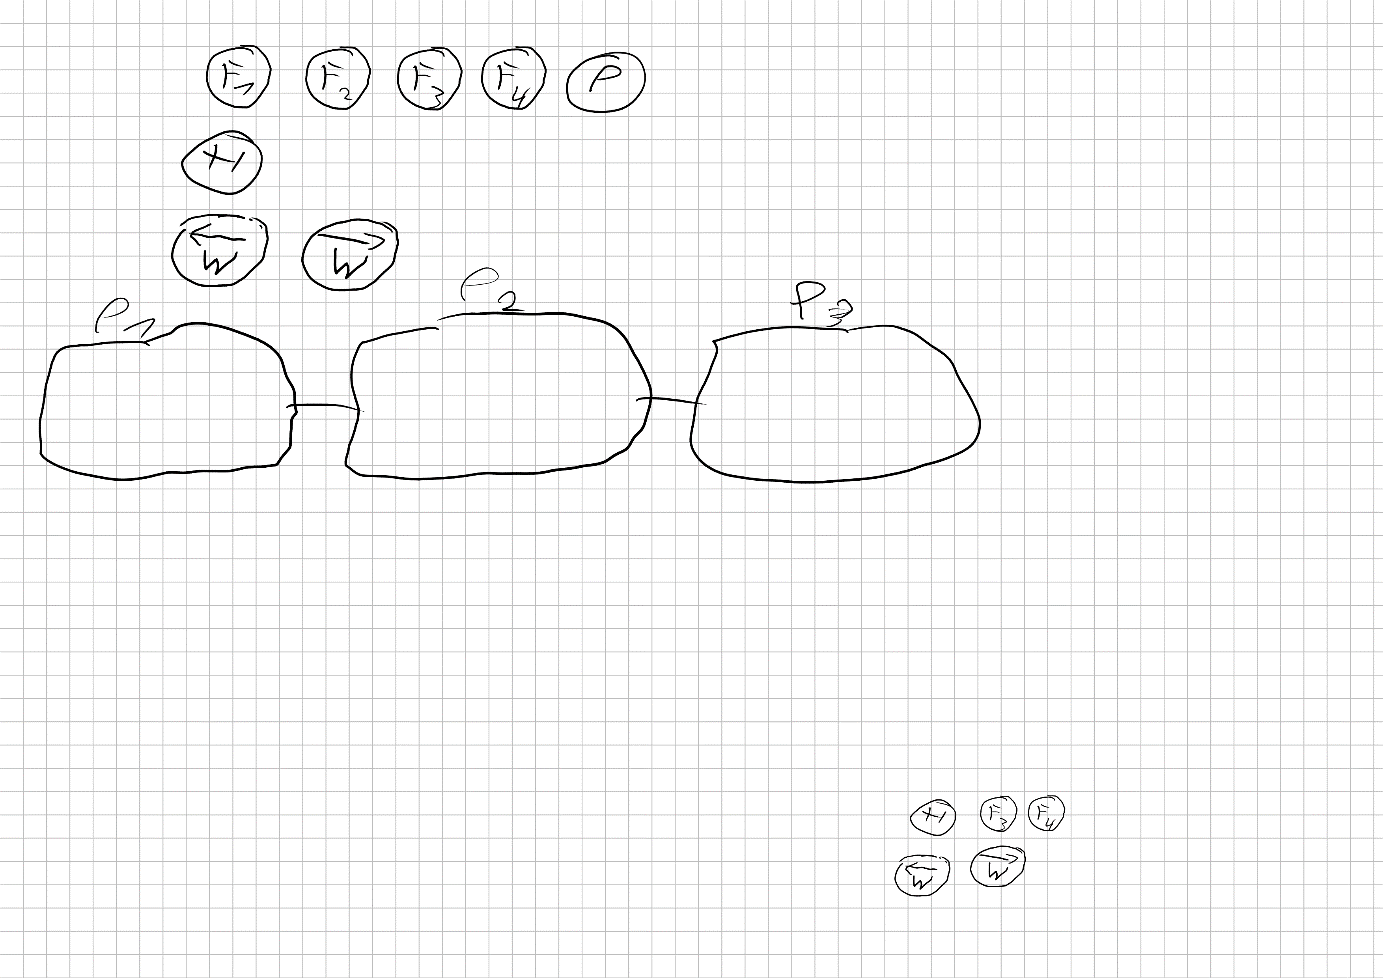 F1 F2 F3 F4 P
H
W W
P1 P2 P3
H F3 F4
W W